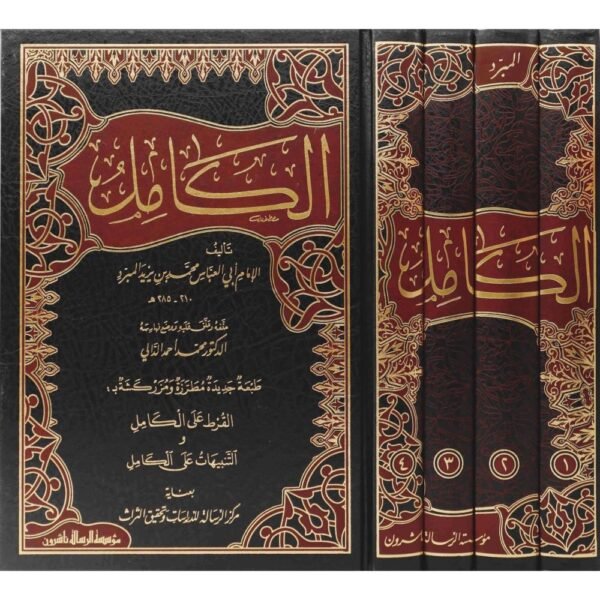 الكامل
تأليف
الإمام أبي العباس محمد بن يزيد المبرد
٢١٠ - ٢٨٥ هـ
حققه وعلق عليه ووضع فهارسه
الدكتور محمد أحمد الدالي
طبعة جديدة مطرزة ومزركشة بـ :
القرط على الكامل
و
التنبيهات على الكامل
بعناية
مركز الرسالة للدراسات وتحقيق التراث
مؤسسة الرسالة ناشرون
المبرد
الكامل
١ ٢ ٣ ٤
مؤسسة الرسالة ناشرون